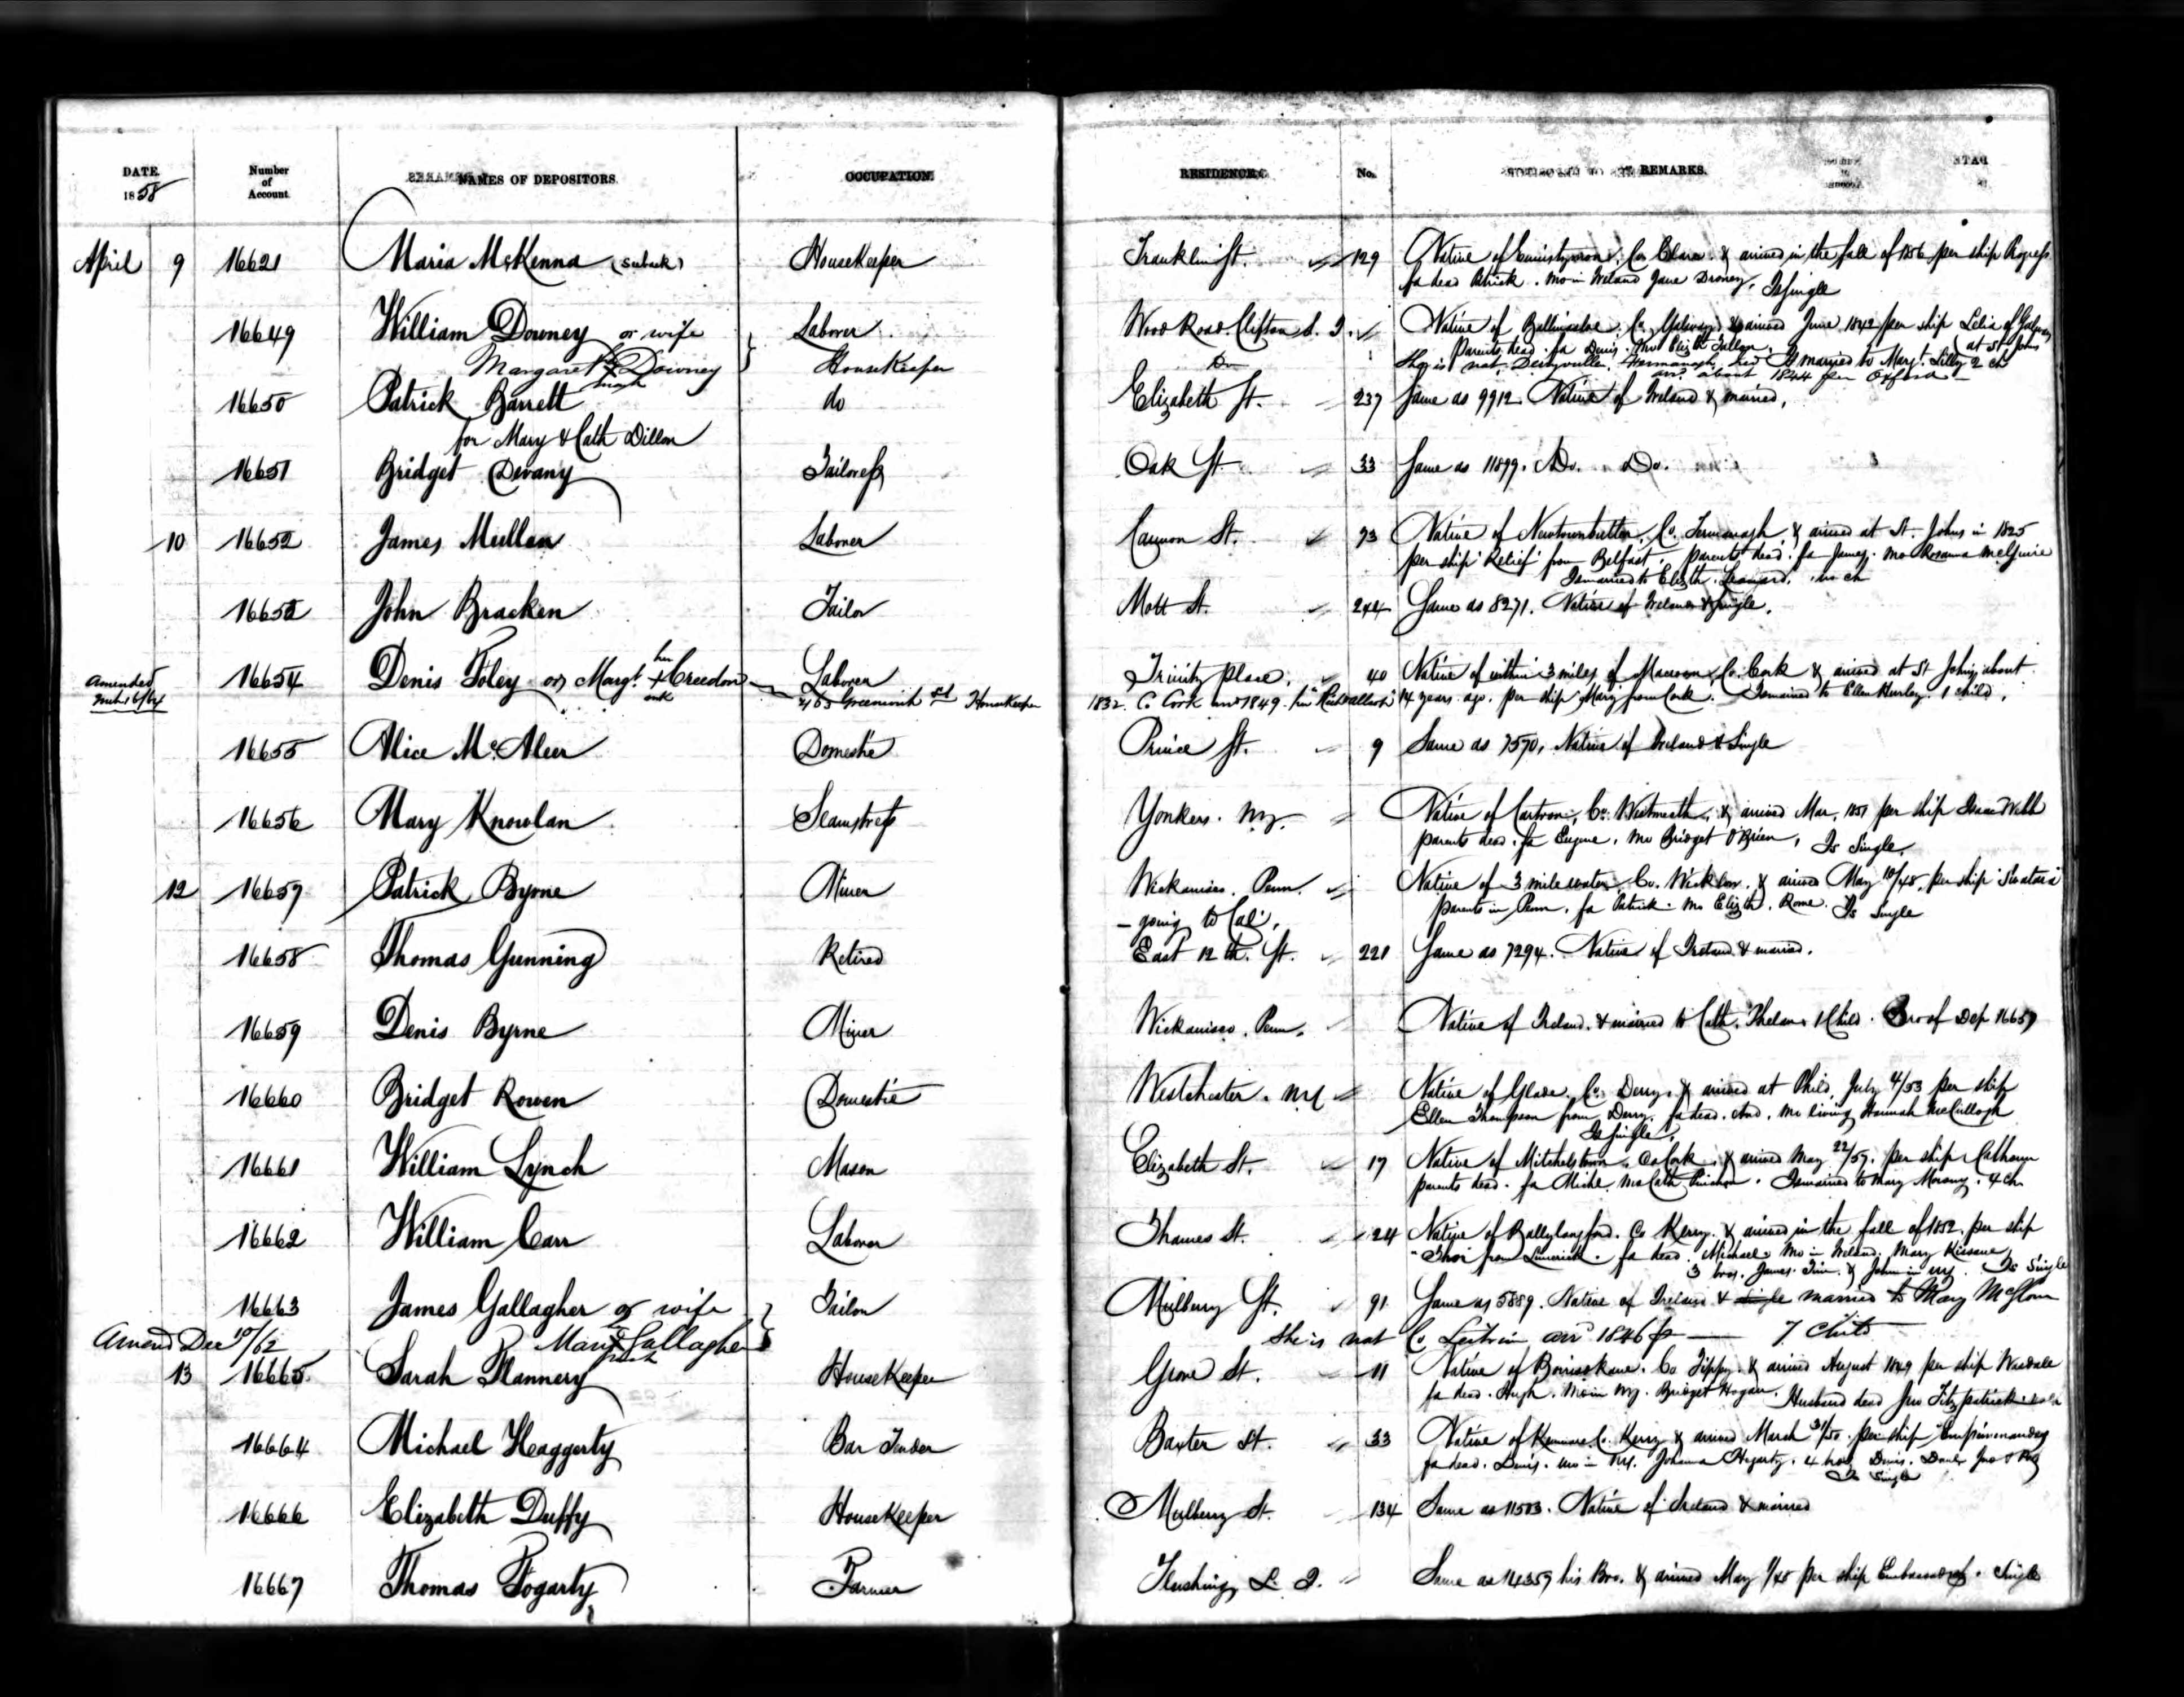 DATE 1858 Number of Account NAMES OF DEPOSITORS. OCCUPATION. RESIDENCE. No. REMARKS.
April 9 16621 Maria McKenna HouseKeeper Franklin St. 129 Native of Co. Clare & arrived in the fall of 1856 per ship Progress
fa dead Patrick. Mo in Ireland Jane Droney. Is single
16649 William Downey or wife Laborer Wood Road. Clifton S. I. Native of Ballinasloe Co. Galway & arrived June 1842 per ship Lelia of Galway
parents dead. fa Denis. Mo Elizth Fallon. (at St Johns
Margaret X Downey HouseKeeper Do She is nat. Fermanagh, Is married to Margt. Lilly 2 ch
mark arr. about 1844 per Oxford
16650 Patrick Barrett do Elizabeth St. 237 Same as 9912. Native of Ireland & married.
for Mary & Cath Dillon
16651 Bridget Devany Tailoress Oak St. 33 Same as 11899. Do. Do.
10 16652 James Mullen Laborer Cannon St. 73 Native of Newtownbutler, Co. Fermanagh, & arrived at St. Johns in 1825
per ship Relief from Belfast. parents dead. fa James. Mo Rosanna McGuire
Is married to Elizth. Leonard. no ch
16653 John Bracken Tailor Mott St. 244 Same as 8271. Native of Ireland & single.
Amended 16654 Denis Foley or Margt. her X Creedon Laborer Trinity place. 40 Native of within 3 miles of Macroom Co. Cork & arrived at St Johns about
mark 463 Greenwich St HouseKeeper 1832. Co Cork arr 1849. 14 years ago. per ship Mary from Cork. Is married to Ellen Hurley. 1 child.
16655 Alice McAleer Domestic Prince St. 9 Same as 7570, Native of Ireland & Single
16656 Mary Knowlan Seamstress Yonkers. NY. Native of Co. Westmeath, & arrived Mar, 1851 per ship Isaac Webb
parents dead. fa Eugene. Mo Bridget O'Brien, Is Single.
12 16657 Patrick Byrne Miner Wickanisco. Penn. Native of 3 mile water, Co. Wicklow. & arrived May 10/48. per ship
parents in Penn. fa Patrick. Mo Elizth. Rome. Is Single
- going to Cal.
16658 Thomas Gunning Retired East 12th. St. 221 Same as 7294. Native of Ireland & married.
16659 Denis Byrne Miner Wickanisco. Penn. Native of Ireland. & married to Cath. Phelan 1 Child. Bro of Dep 16657
16660 Bridget Rowen Domestic Westchester. NY Native of Glade. Co. Derry. & arrived at Phild. July 4/53 per ship
Ellen Thompson from Derry. fa dead. And. Mo living Hannah McCullogh
Is single.
16661 William Lynch Mason Elizabeth St. 17 Native of Mitchelstown. Co Cork. & arrived May 22/57. per ship Calhoun
parents dead. fa Michl. Mo Cath. Is married to Mary 4 ch.
16662 William Carr Laborer Thames St. 24 Native of Ballylongford. Co Kerry. & arrived in the fall of 1852. per ship
from Limerick. fa dead. Michael. Mo in Ireland. Mary Kissane
3 bros. James. Tim. & John in NY. Is Single
16663 James Gallagher or wife Tailor Mulberry St. 91 Same as 5889. Native of Ireland & single married to Mary McGlone
Amend Dec 10/62 Mary X Gallagher She is nat Co. Leitrim arr 1846 7 Child
mark
13 16665 Sarah Flannery HouseKeeper Grove St. 11 Native of Borrisokane. Co Tippy. & arrived August 1849 per ship
fa dead. Hugh. Mo in NY. Bridget Hogan. Husband dead Jno Fitzpatrick
16664 Michael Haggerty Bar Tender Baxter St. 33 Native of Kenmare Co. Kerry & arrived March 31/50. per ship
fa dead. Denis. Mo in NY. Johanna Hegarty. 4 bros. Denis. Danl. Jno &
Is Single
16666 Elizabeth Duffy HouseKeeper Mulberry St. 134 Same as 11503. Native of Ireland & married
16667 Thomas Fogarty Farmer Flushing L. I. Same as 14359 his Bro. & arrived May 1/48 per ship Single